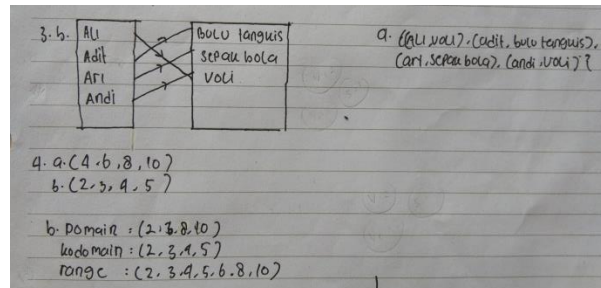 3. b. Ali
Adit
Ari
Andi
Bulu tanguis
sepak bola
voli
a. {(Ali, voli), (adit, bulu tanguis),
(ari, sepak bola), (andi, voli)}
4. a. (4, 6, 8, 10)
b. (2, 3, 4, 5)
b. Domain : (2, 3, 8, 10)
kodomain : (2, 3, 4, 5)
range : (2, 3, 4, 5, 6, 8, 10)